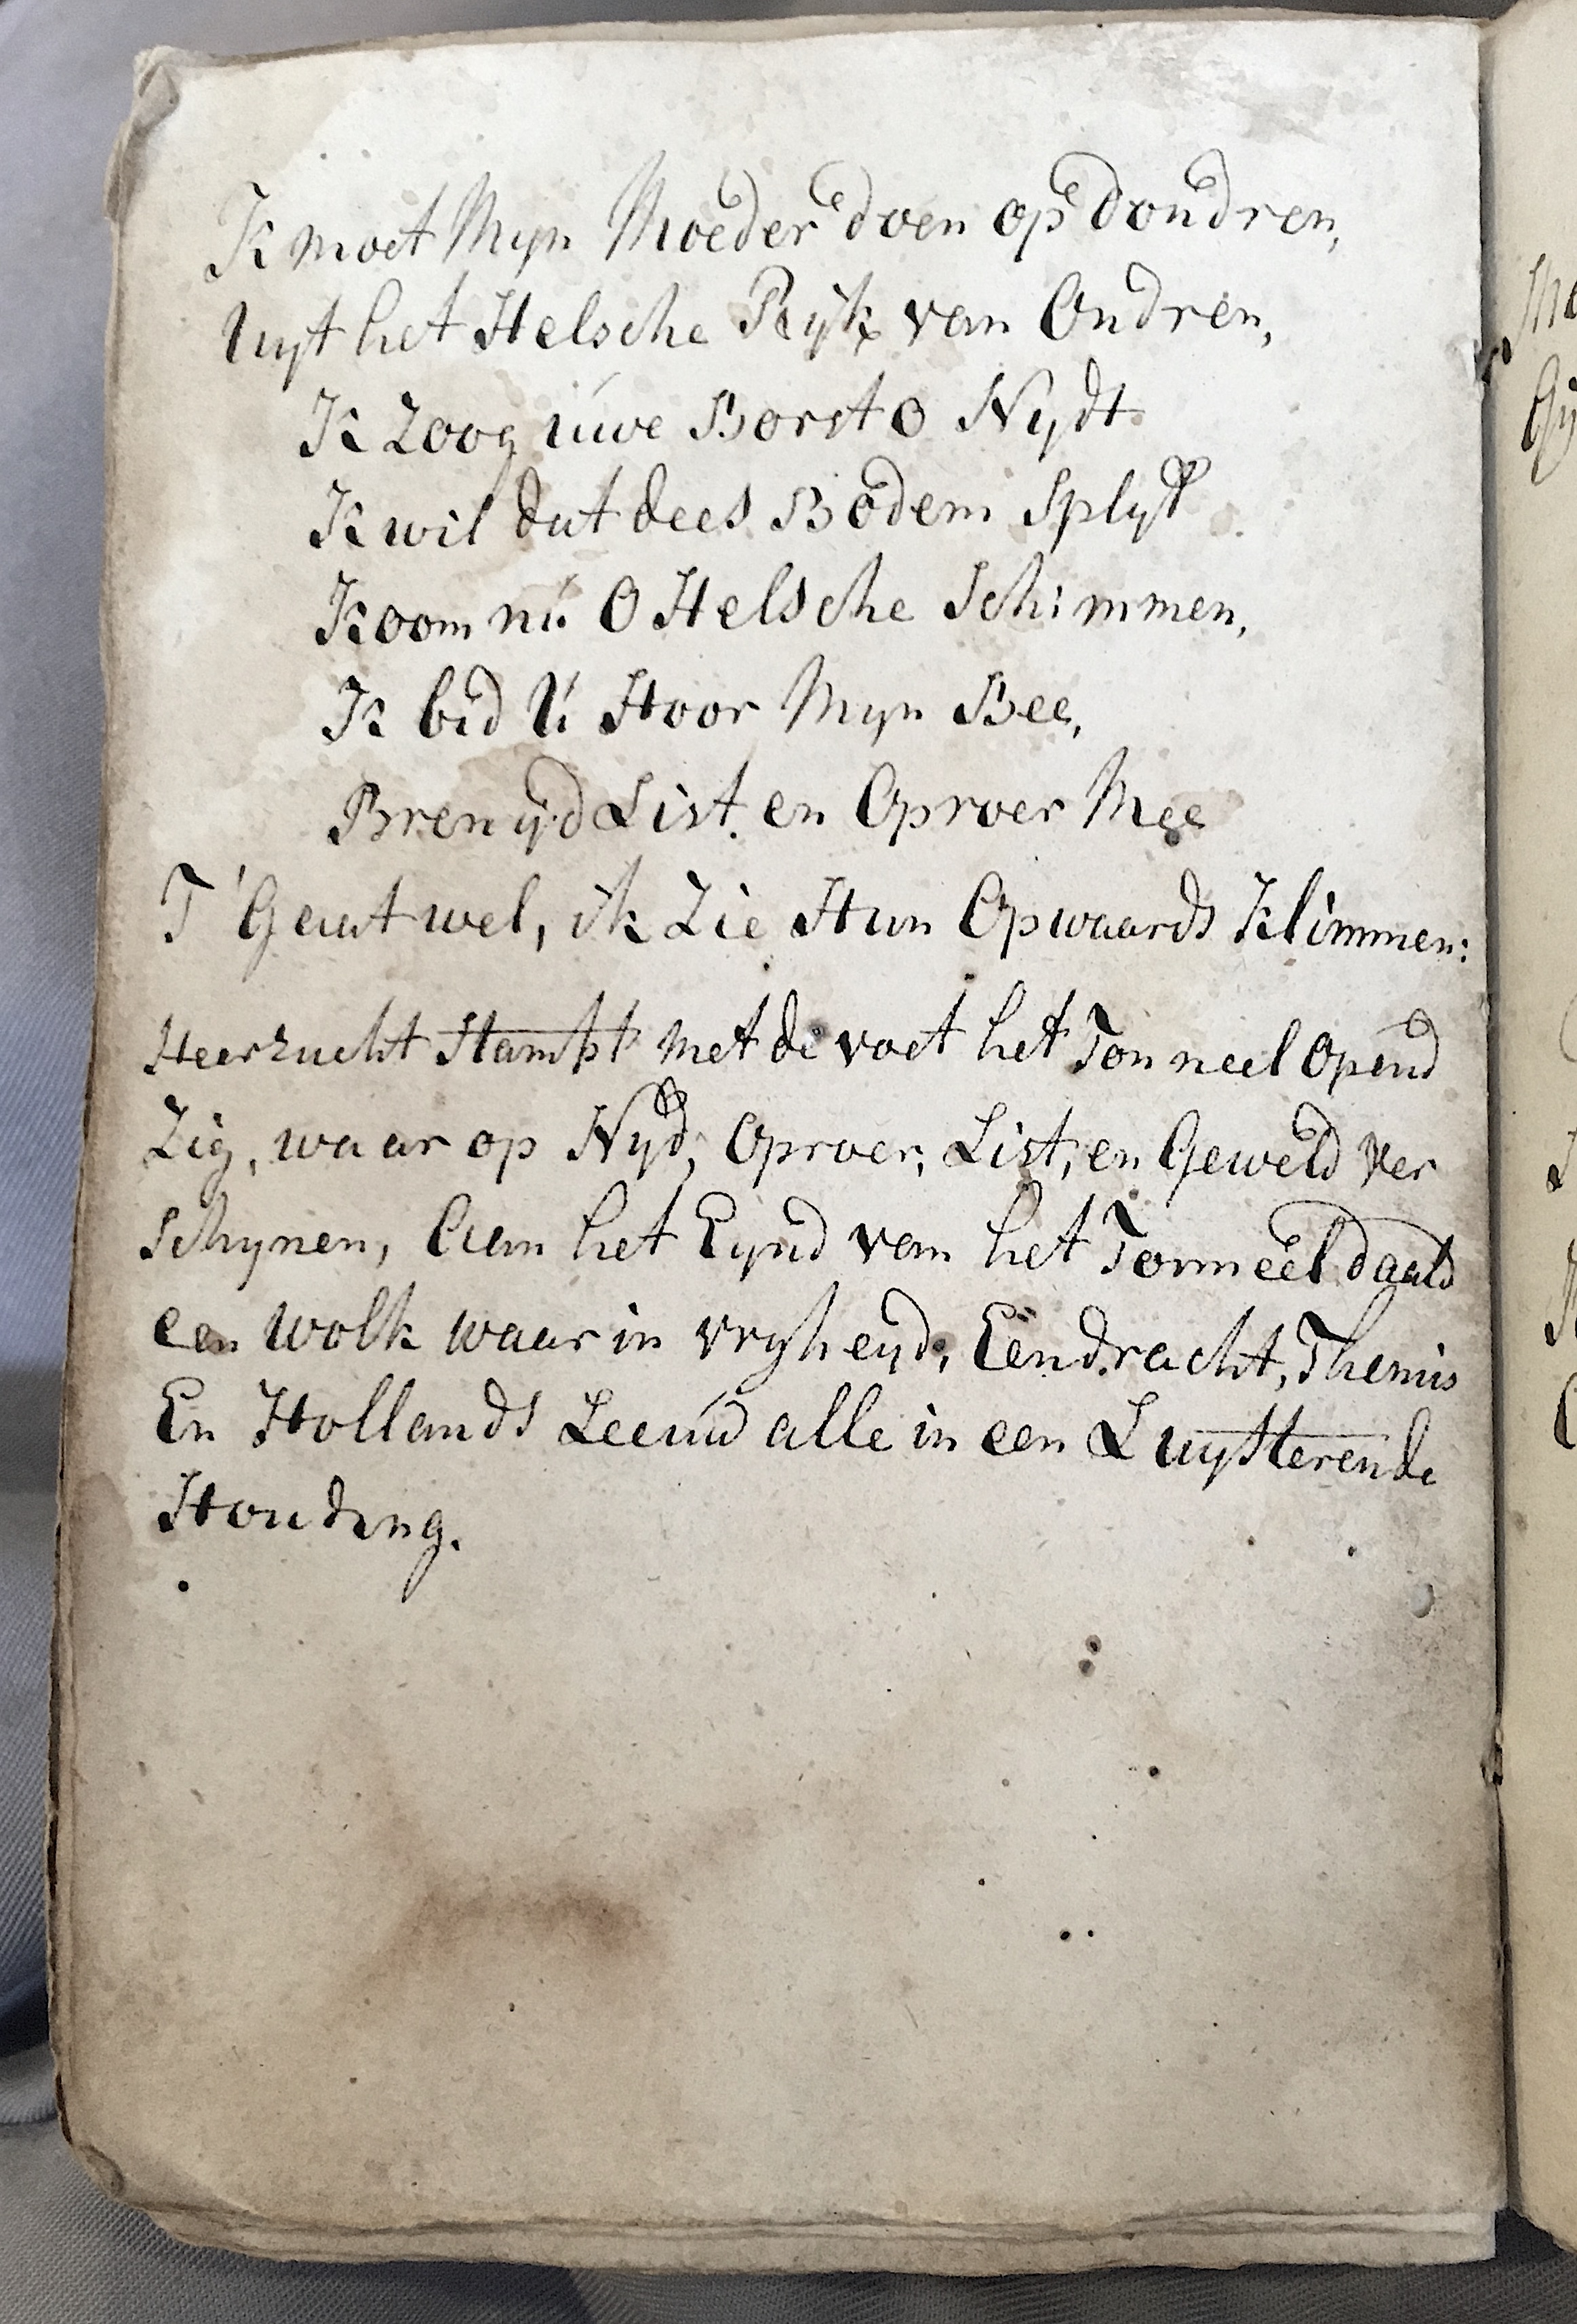 Ik moet Myn Moeder doen op dondren,
Uyt het Helsche Ryk van Ondren,
Ik Zoog uwe Borst o Nydt
Ik wil dat dees Bodem Splyt
Koom nú O Helsche Schimmen,
Ik bid Ú Hoor Myn Bee,
Breng List en Oproer Mee
T' Gaat wel, ik Zie Hun Opwaards Klimmen:
Heerzucht Stampt Met de voet het Tonneel Opend
Zig, waar op Nyd, Oproer, List, en Geweld Ver
Schynen, Aan het Eynd van het Tonneel daald
een Wolk waar in vryheyd, Eendracht, Themis
En Hollands Leeuw alle in een Luysterende
Houding.